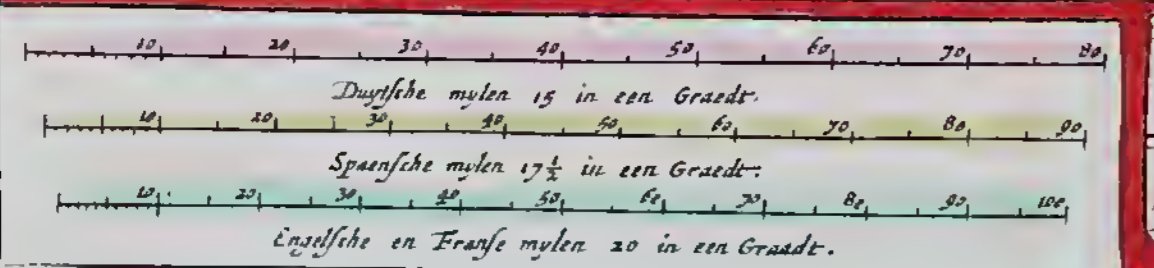 10 20 30 40 50 60 70 80
Duytsche mylen 15 in een Graedt.
10 20 30 40 50 60 70 80 90
Spaensche mylen 17½ in een Graedt:
10 20 30 40 50 60 70 80 90 100
Engelsche en Franse mylen 20 in een Graadt.